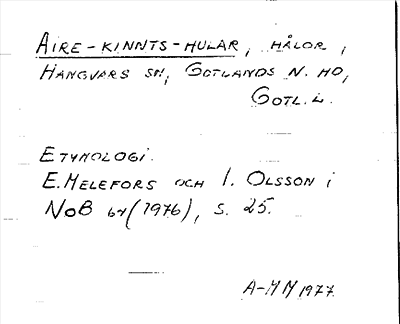 AIRE-KINNTS-HULAR, HÅLOR,
HANGVARS SN, GOTLANDS N. HD,
GOTL. L.
ETYMOLOGI.
E. MELEFORS OCH I. OLSSON i
NoB 64 (1976), S. 25.
A-MM 1977.